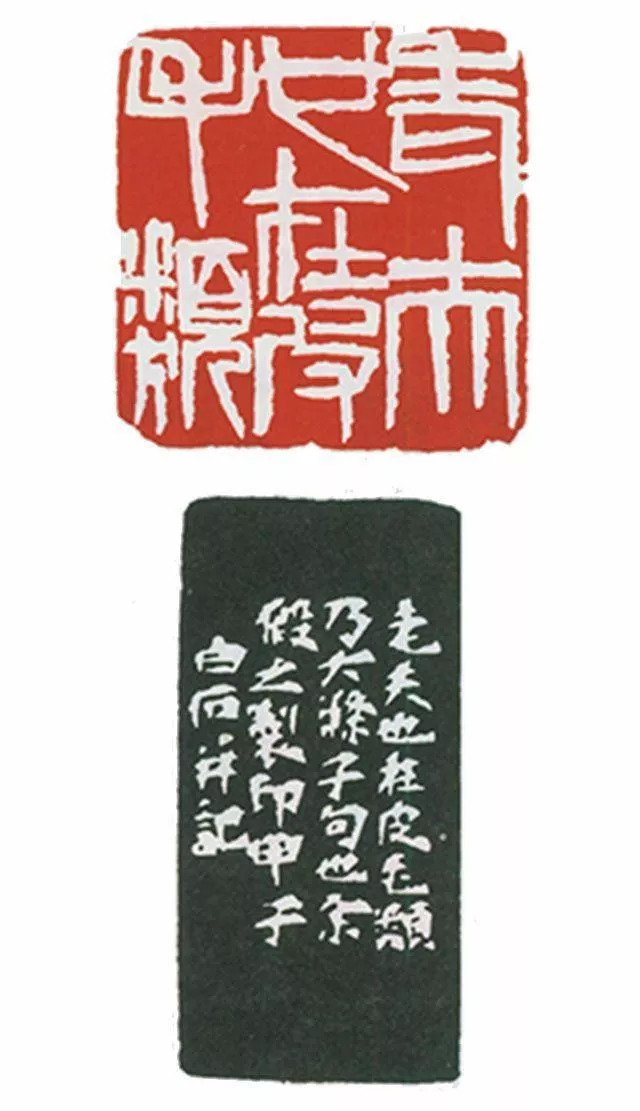 老夫
也在皮
毛類
老夫也在皮毛類
乃大滌子句也余
假之製印甲子
白石并記